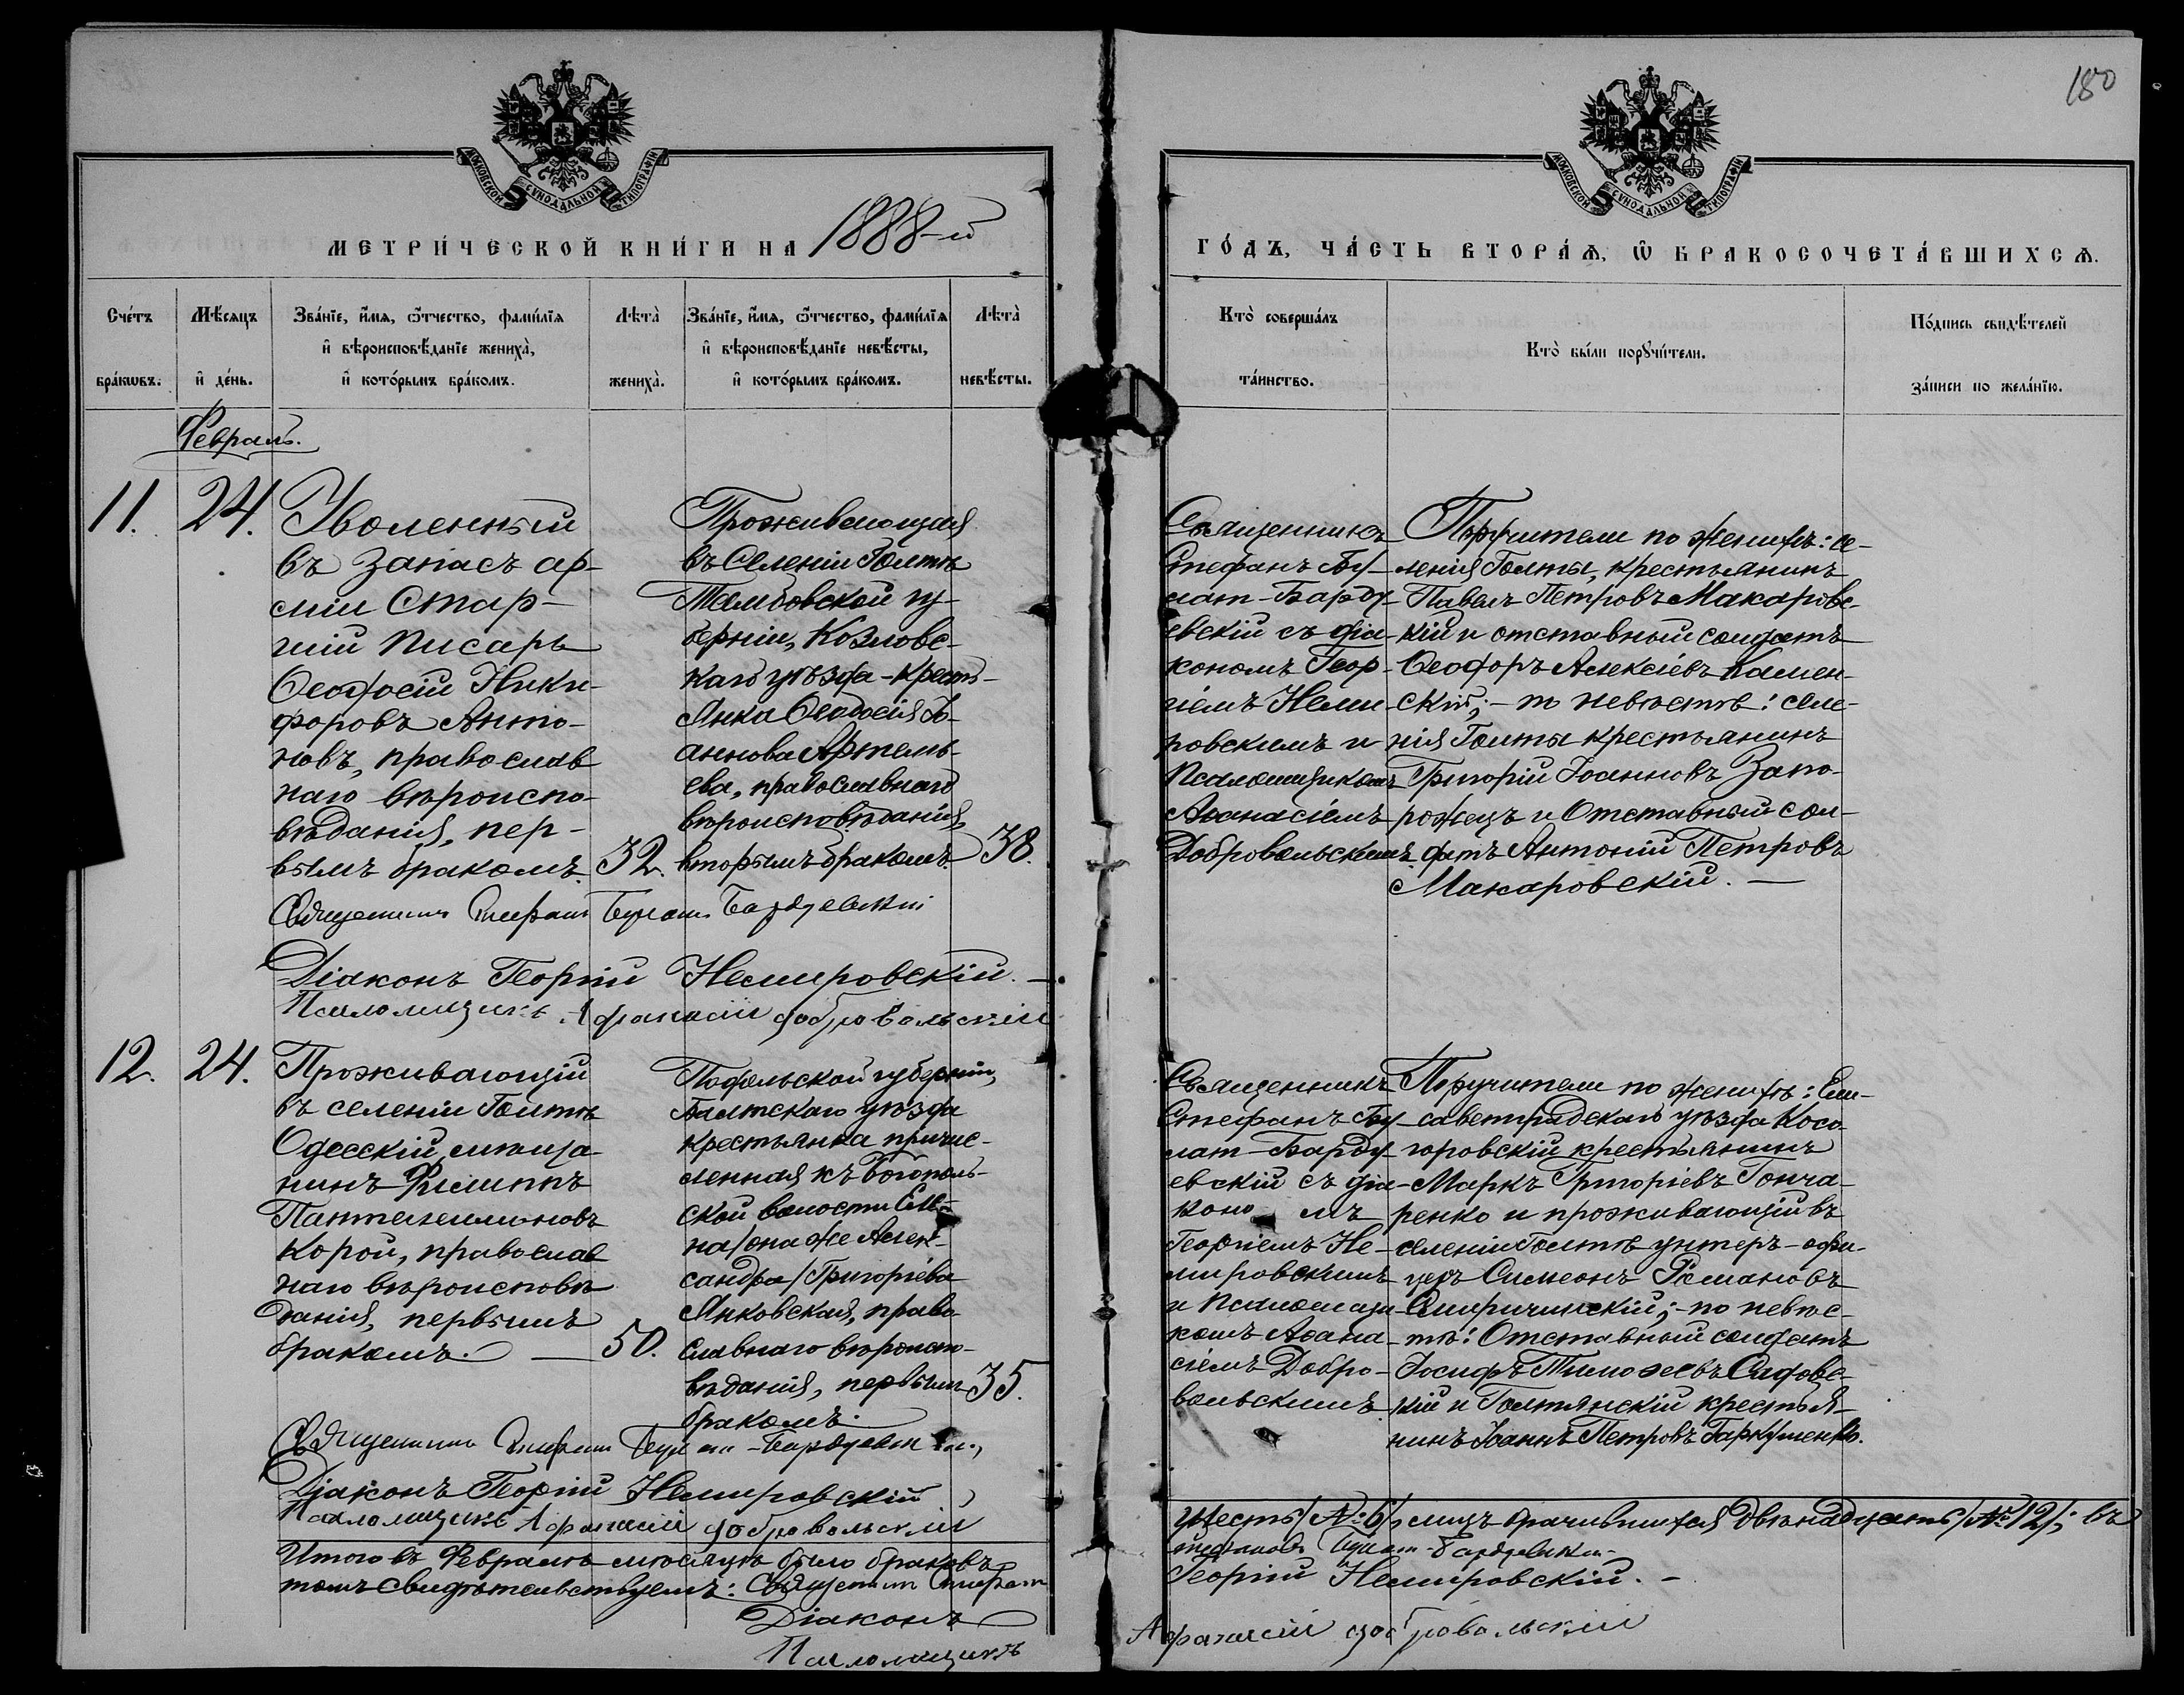 180
МОСКОВСКОЙ СѴНОДАЛЬНОЙ ТИПОГРАФІИ
МОСКОВСКОЙ СѴНОДАЛЬНОЙ ТИПОГРАФІИ
МЕТРИ́ЧЕСКОЙ КНИ́ГИ НА 1888-й
ГО́ДЪ, ЧА́СТЬ ВТОРА́Ѧ, Ѽ БРАКОСОЧЕТА́ВШИХСѦ.
Сче́тъ бра́кѡвъ.
Мѣ́сяцъ и҆ де́нь.
Зва́нїе, и҆́мя, ѻ҆́тчество, фами́лїя
и҆ вѣроисповѣ́данїе жениха̀,
и҆ кото́рымъ бра́комъ.
Лѣта̀ жениха̀.
Зва́нїе, и҆́мя, ѻ҆́тчество, фами́лїя
и҆ вѣроисповѣ́данїе невѣ́сты,
и҆ кото́рымъ бра́комъ.
Лѣта̀ невѣ́сты.
Кто̀ соверша́лъ та́инство.
Кто̀ бы́ли порꙋчи́тели.
По́дпись свидѣ́телей за́писи по жела́нїю.
Февраль.
11.
24.
Уволенный
въ запасъ ар-
міи Стар-
шій писарь
Ѳеодосій Ники-
форовъ Анто-
новъ, православ
наго вѣроиспо-
вѣданія, пер-
вымъ бракомъ.
32.
Проживающая
въ селеніи Голтѣ
Тамбовской гу-
берніи, Козловс-
каго уѣзда-крестъ-
янка Ѳеодосія Іо-
аннова Артемь-
ева, православнаго
вѣроисповѣданія,
вторымъ бракомъ.
38.
Священникъ
Стефанъ Бу-
лат-Барду-
евскій съ діа-
кономъ Геор-
гіемъ Неми-
ровскимъ и
Псаломщикомъ
Аѳанасіемъ
Добровольскимъ.
Поручители по женихѣ: се-
ленія Голты, крестьянинъ
Павелъ Петровъ Макаровс-
кій и отставный солдатъ
Ѳеодоръ Алексіевъ Камен-
скій; - по невѣстѣ: селе-
нія Голты крестьянинъ
Григорій Іоанновъ Запо-
рожецъ и Отставный сол-
датъ Антоній Петровъ
Макаровскій. —
Священникъ Стефанъ Булат-Бардуевскій
Діаконъ Георгій Немировскій. —
Псаломщикъ Афанасій Добровольскій
12.
24.
Проживающій
въ селеніи Голтѣ
Одесскій мѣща-
нинъ Филиппъ
Пантелеимоновъ
Корой, православ
наго вѣроисповѣ
данія, первымъ
бракомъ. —
50.
Подольской губерніи,
Балтскаго уѣзда
крестьянка причис-
ленная къ Богополь-
ской волости Еле-
на/она же Алек-
сандра/Григорьева
Янковская, право
славнаго вѣроиспо-
вѣданія, первымъ
бракомъ.
35.
Священникъ
Стефанъ Бу-
лат-Барду-
евскій съ діа-
кономъ
Георгіемъ Не-
мировскимъ
и псаломщи-
комъ Аѳана-
сіемъ Добро-
вольскимъ.
Поручители по женихѣ: Ели-
саветградскаго уѣзда Косо-
горовскій крестьянинъ
Маркъ Григоріевъ Гонча-
ренко и проживающій въ
селеніи Голтѣ унтеръ-офи-
церъ Симеонъ Романовъ
по невѣс-
тѣ: Отставный солдатъ
Іосифъ Тимоѳеевъ Садовс-
кій и Голтянскій крестья-
нинъ Іоаннъ Петровъ Гаркушенко.
Священникъ Стефанъ Булат-Бардуевскій
Діаконъ Георгій Немировскій
Псаломщикъ Афанасій Добровольскій
Итого въ Февралѣ мѣсяцѣ было браковъ шесть/№ 6/, лицъ брачившихся двѣнадцать/№ 12/; въ
томъ свидѣтельствуемъ: Священникъ Стефанъ Булат-Бардуевскій
Діаконъ Георгій Немировскій. —
Псаломщикъ Афанасій Добровольскій